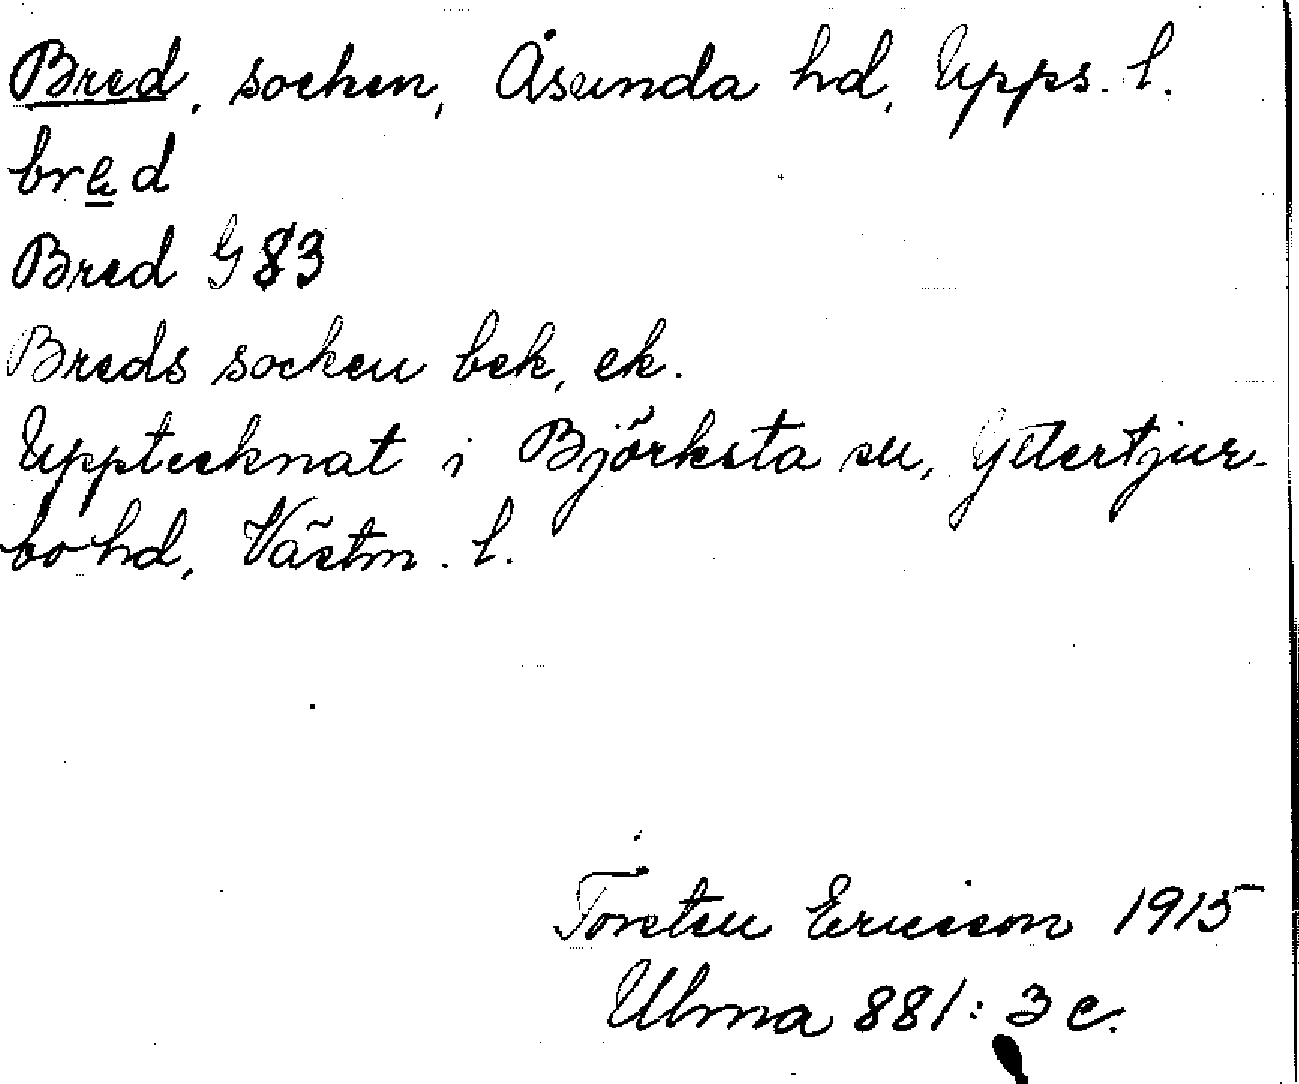 Bred, socken, Åsunda hd, Upps. l.
bred
Bred G 83
Breds socken bek, ek.
Upptecknat i Björksta sn, Yttertjur-
bo hd, Västm. l.
Torsten Ericsson 1915
Ulma 881: 3 c.